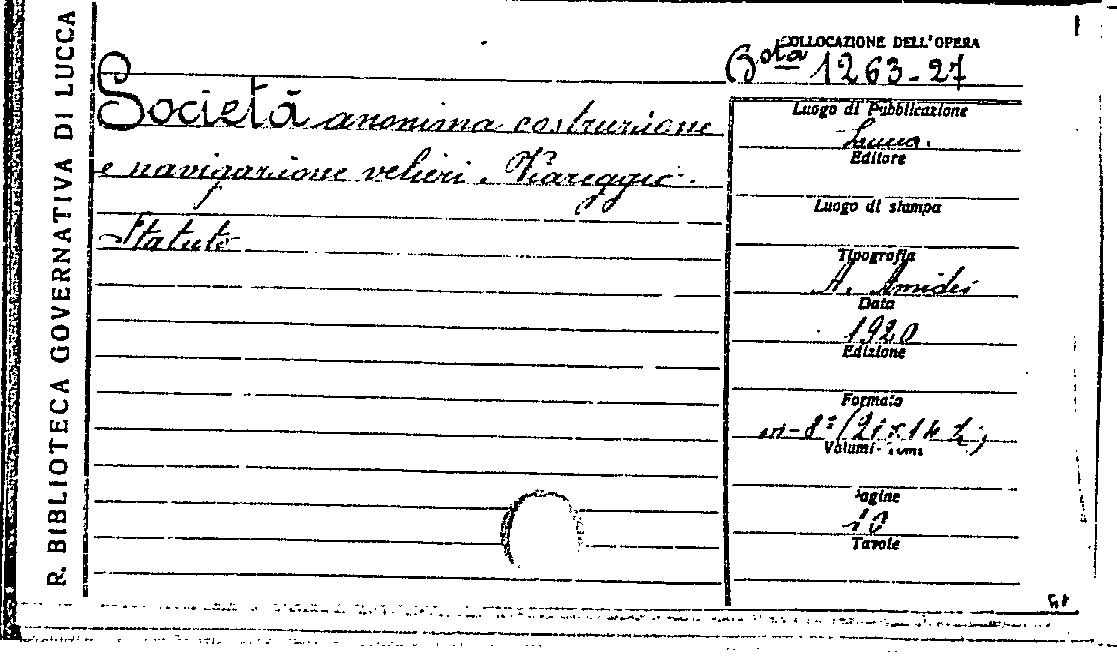 R. BIBLIOTECA GOVERNATIVA DI LUCCA
Società anonima costruzione
e navigazione velieri. Viareggio.
Statuto
COLLOCAZIONE DELL'OPERA
Bta 1263-27
Luogo di Pubblicazione
Lucca.
Editore
Luogo di stampa
Tipografia
A. Amidei
Data
1920
Edizione
Formato
in-8°
Volumi-Tomi
Pagine
10
Tavole